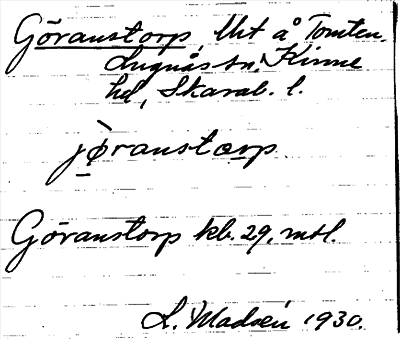 Göranstorp, Utt å Tomten.
Lugnås sn, Kinne
hd, Skarab. l.
jø̀ranstorp.
Göranstorp kb. 29, mtl.
L. Madsén 1930.